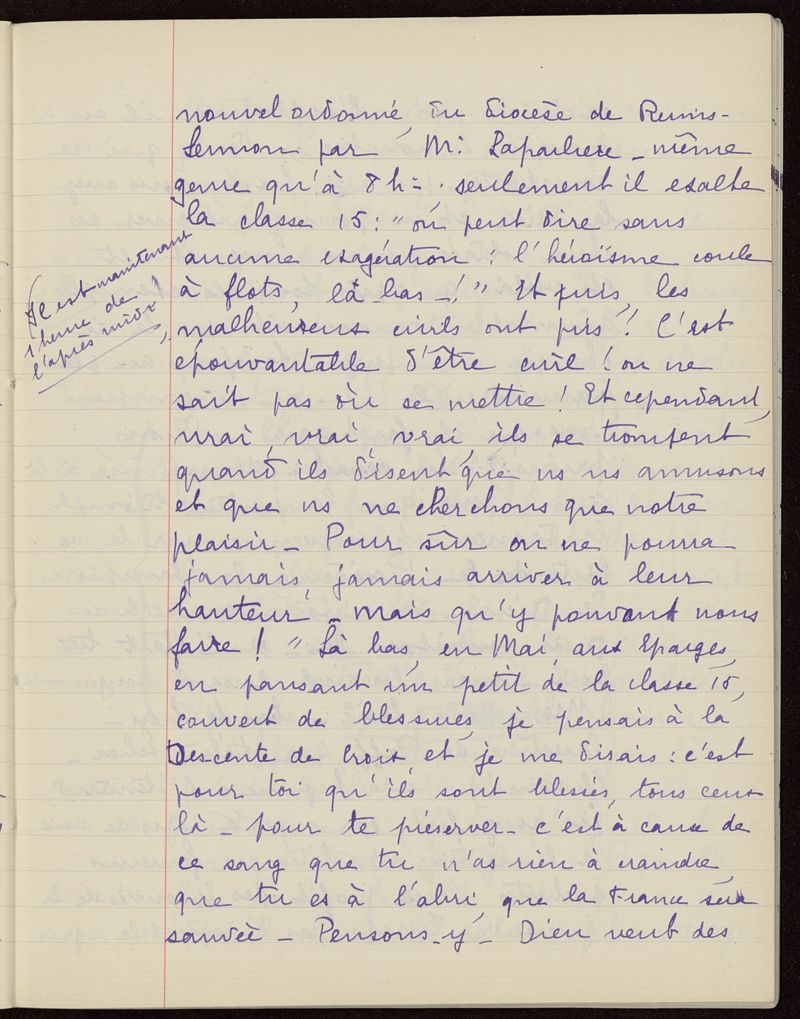 nouvel ordonné, du diocèse de Reims -
Sermon par M: - même
genre qu'à 8 h = . seulement il exalte
la classe 15 : " on peut dire sans
aucune exagération : l'héroïsme coule
à flots, là-bas - ! " Et puis, les
malheureux civils ont pris ! C'est
épouvantable d'être civil ! on ne
sait pas où se mettre ! Et cependant,
vrai, vrai, vrai, ils se trompent
quand ils disent que ns ns amusons
et que ns ne cherchons que notre
plaisir - Pour sûr on ne pourra
jamais, jamais arriver à leur
hauteur - mais qu'y pouvant nous
faire ! " Là bas, en Mai, aux Eparges,
en pansant un petit de la classe 15,
couvert de blessures, je pensais à la
Descente de Croix, et je me disais : c'est
pour toi qu'ils sont blessés, tous ceux
là - pour te préserver - c'est à cause de
ce sang que tu n'as rien à craindre,
que tu es à l'abri, que la France sera
sauvée - Pensons-y - Dieu veut des
(Il est maintenant
1 heure de
l'après midi)